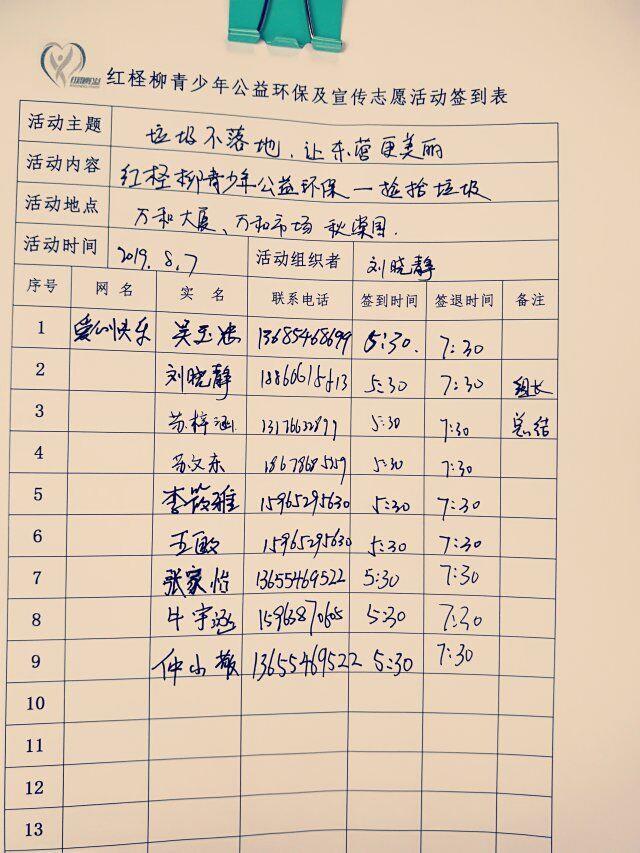 红柽柳青少年公益环保及宣传志愿活动签到表
活动主题 垃圾不落地、让东营更美丽
活动内容 红柽柳青少年公益环保一捡拾垃圾
活动地点 万和大厦、万和市场 秋棠园.
活动时间 2019.8.7 活动组织者 刘晓静
序号 网名 实名 联系电话 签到时间 签退时间 备注
1 快乐 吴玉 13685468699 5:30. 7:30
2 刘晓静 5:30 7:30 组长
3 苏梓涵 5:30 7:30 总结
4 苏文东 5:30 7:30
5 李筱雅 15965295630 5:30 7:30
6 王敏 15965295630 5:30 7:30
7 张家怡 13655469522 5:30 7:30
8 牛宇涵 5:30 7:30
9 仲小敏 13655469522 5:30 7:30
10
11
12
13